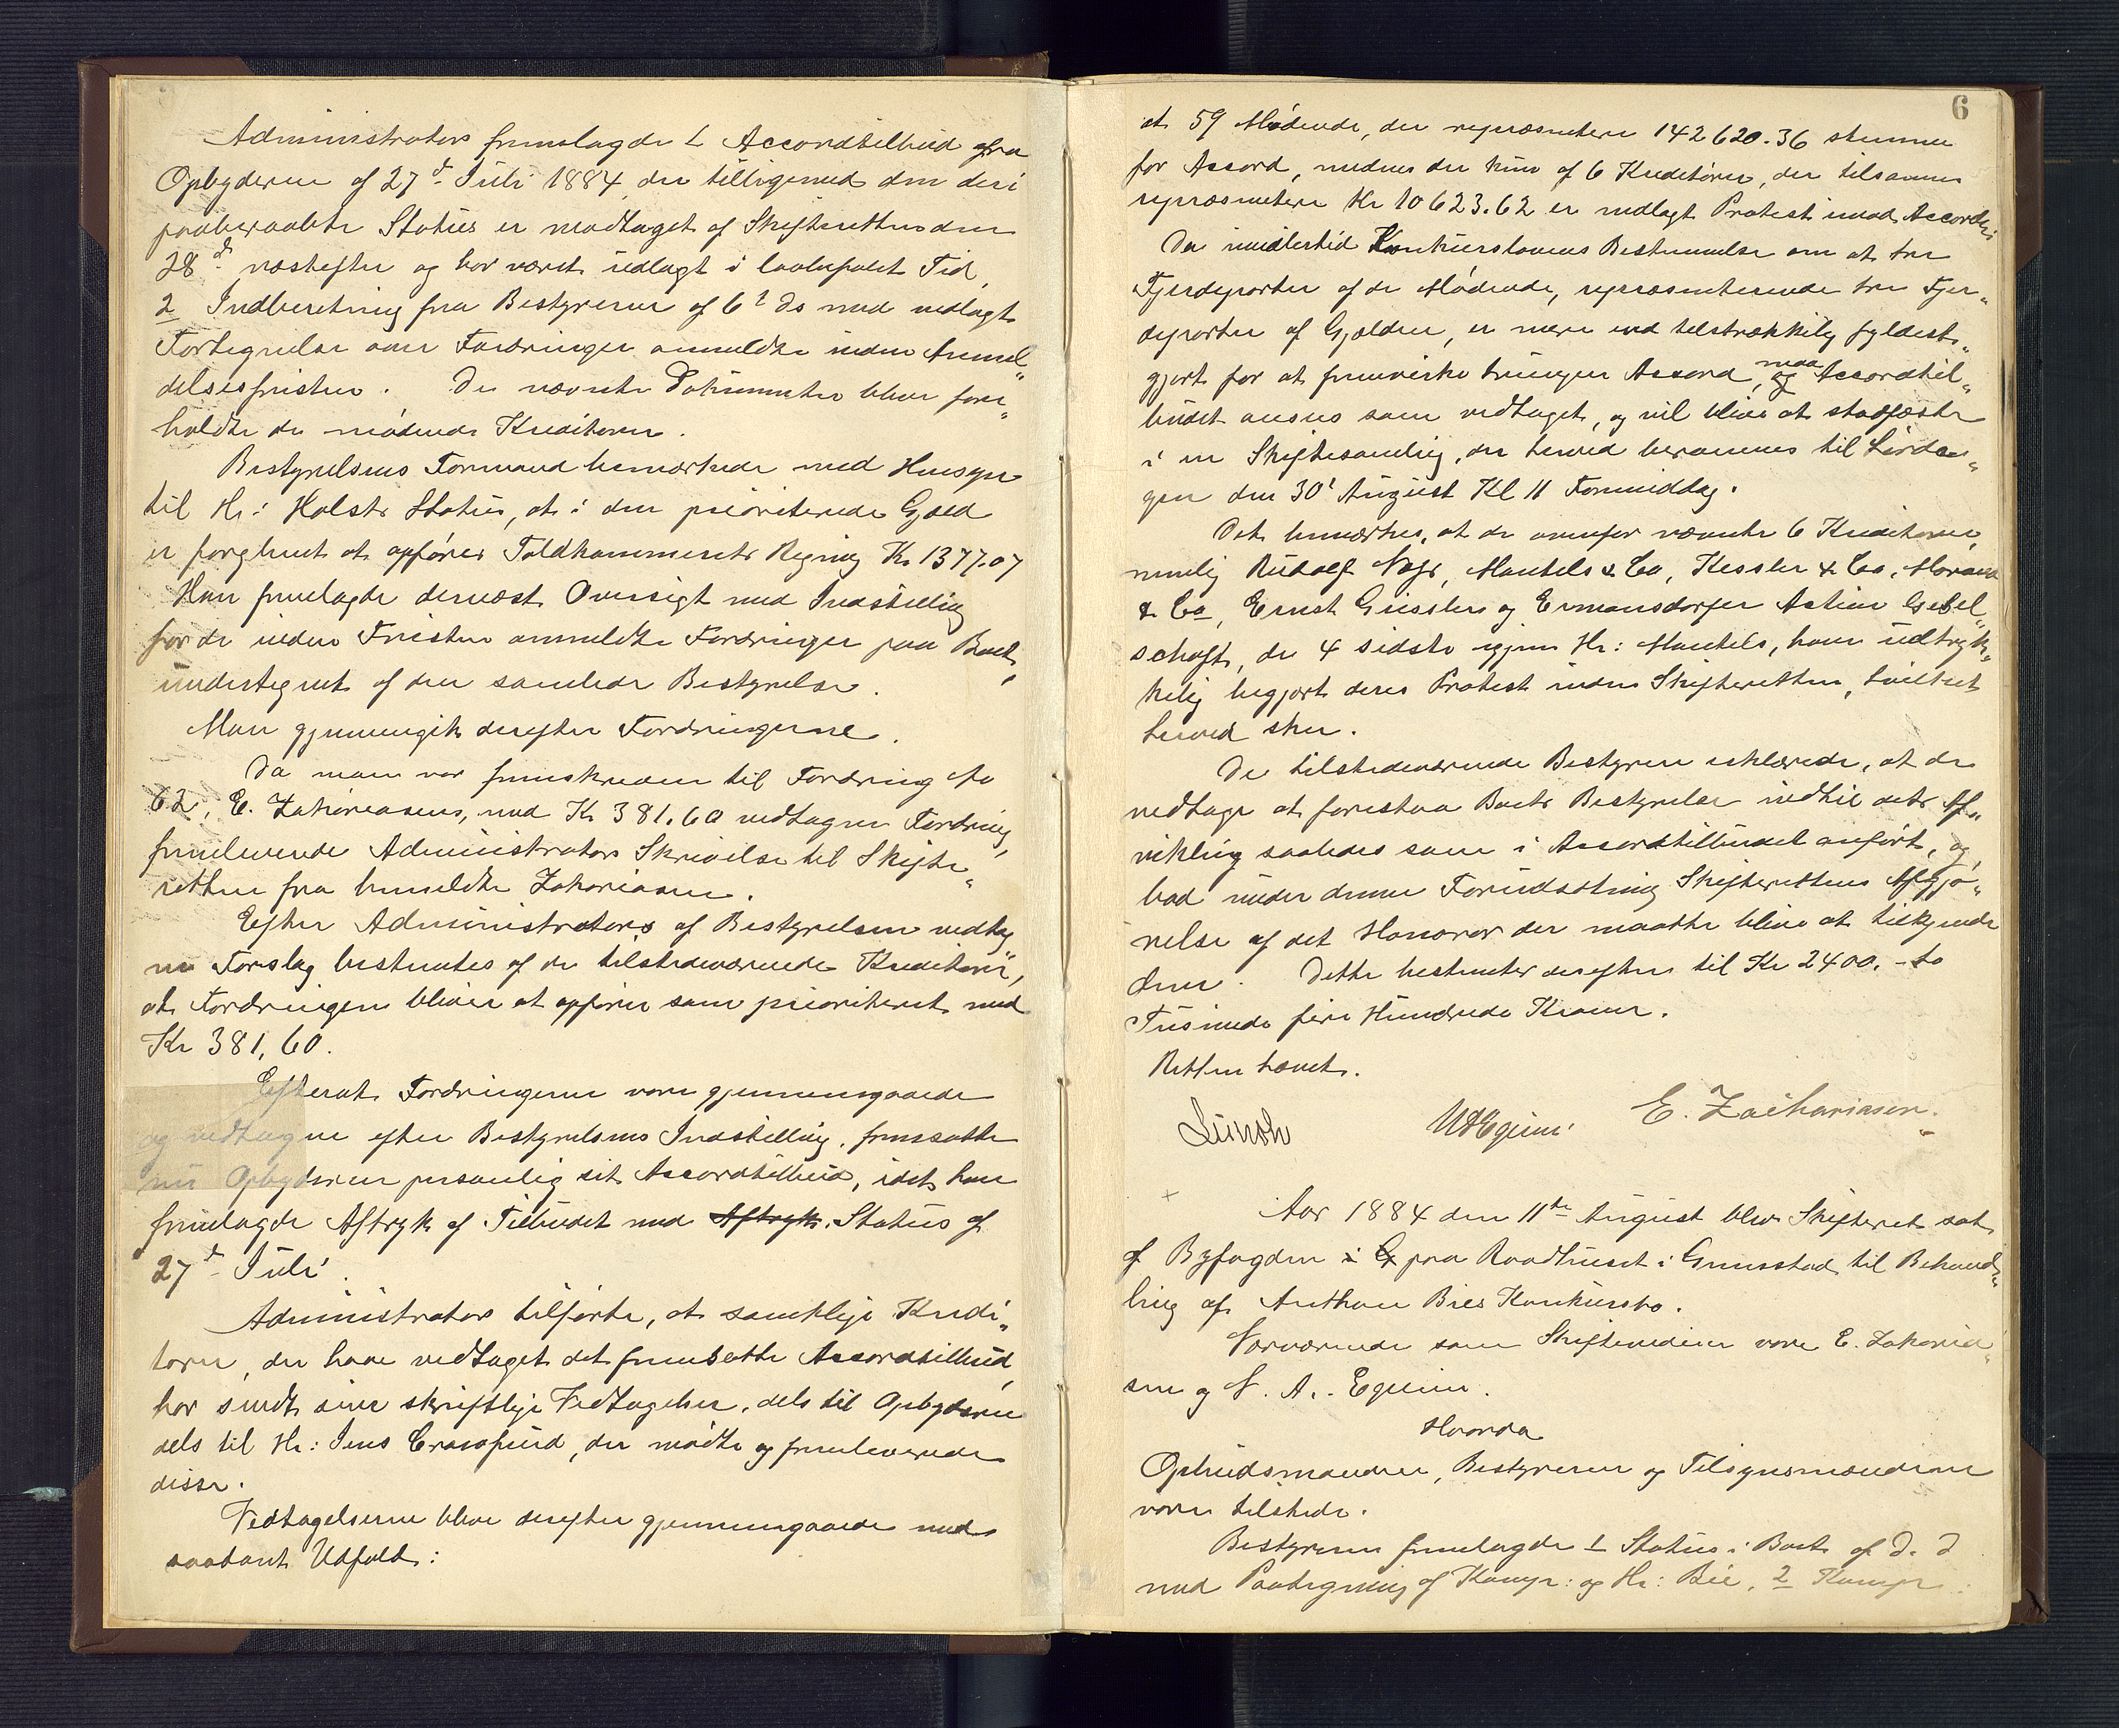 Administrator fremlagde 1 Accordtilbud fra
Opbyderen af 27d Juli 1884, der tilligemed den deri
paaberaabte Status er modtaget af Skifteretten den
28d næstefter og har været udlagt i lovbefalet Tid,
2 Indberetning fra Bestyreren af 6t ds med vedlagt
Fortegnelse over Fordringer anmeldte inden Anmel„
delsesfristen. De nævnte Dokumenter blev fore„
holdte de mødende Kreditorer.
Bestyrelsens Formand bemærkede med Hensyn
til Hr: Holsts Status, at i den prioriterede Gjæld
er forglemt at opføres Toldkammerets Regning Kr 1377.07
Han fremlagde dernæst Oversigt med Indstilling
for de inden Fristen anmeldte Fordringer paa Boet,
undertegnet af den samlede Bestyrelse.
Man gjennemgik derefter Fordringerne.
Da man var fremskreden til Fordring No
62, E. Zakariasens, med Kr 381.60 vedtagen Fordring,
fremleverede Administrator Skrivelse til Skifte„
retten fra bemeldte Zakariasen.
Efter Administrators af Bestyrelsen vedtag„
ne Forslag bestemtes af de tilstedeværende Kreditorer,
at Fordringen bliver at opføres som prioriteret med
Kr 381,60.
Efterat Fordringerne vare gjennemgaaede
og vedtagne efter Bestyrelsens Indstilling, fremsatte
nu Opbyderen personlig sit Accordtilbud, idet han
fremlagde Aftryk af Tilbudet med Aftryk. Status af
27d Juli.
Administrator tilførte, at samtlige Kredi„
torer, der have vedtaget det fremsatte Accordtilbud,
har sendt sine skriftlige Vedtagelser, dels til Opbyderen
dels til Hr: Jens Crawfurd, der mødte og fremleverede
disse.
Vedtagelserne bleve derefter gjennemgaaede med
saadant Udfald:
6
at 59 Mødende, der repræsentere 142620.36 stemme
for Accord, medens der kun af 6 Kreditorer, der tilsammen
repræsentere Kr 10623.62 er nedlagt Protest imod Accorden
Da imidlertid Konkurslovens Bestemmelse om at tre
Fjerdeparter af de Mødende, repræsenterende tre Fjer„
departer af Gjælden, er mere end tilstrækkelig fyldest„
gjort for at fremvirke tvungen Accord, og maa Accordtil„
budet ansees som vedtaget, og vil blive at stadfæste
i en Skiftesamling, der herved berammes til Lørda„
gen den 30t August Kl 11 Formiddag.
Det bemærkes, at de ovenfor nævnte 6 Kreditorer,
nemlig Rudolf, Mantels & Co, Kessler & Co,
& Co, Ernst Giessler og Ermansdorfer Actien Gesel„
schaft, de 4 sidste igjennem Hr: Mantels, have udtryk„
kelig begjært deres Protest inden Skifteretten, hvilket
herved sker.
De tilstedeværende Bestyrere erklærede, at de
vedtage at forestaa Boets Bestyrelse indtil dets Af„
vikling saaledes som i Accordtilbudet anført, og
bad under denne Forudsætning Skifterettens Afgjø„
relse af det Honorar der maatte blive at tilkjende
dem. Dette bestemtes derefter til Kr 2400. - to
Tusinde fire Hundrede Kroner.
Retten hævet.
Lunoh NAEgium E. Zachariasen.
Aar 1884 den 11te August blev Skifteret sat
af Byfogden i G paa Raadhuset i Grimstad til Behand„
ling af Anthon Bies Konkursbo.
Nærværende som Skiftevidner vare E. Zakaria„
sen og N. A. Egeium.
Hvorda
Opbudsmanden, Bestyreren og Tilsynsmændene
vare tilstede.
Bestyreren fremlagde 1 Status i Boet af d. d
med Paategning af Komp: og Hr: Bie, 2 Komp: